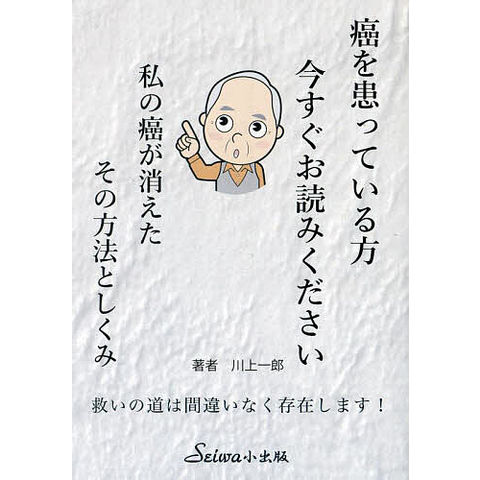 癌を患っている方
今すぐお読みください
私の癌が消えた
その方法としくみ
著者　川上一郎
救いの道は間違いなく存在します！
Seiwa小出版